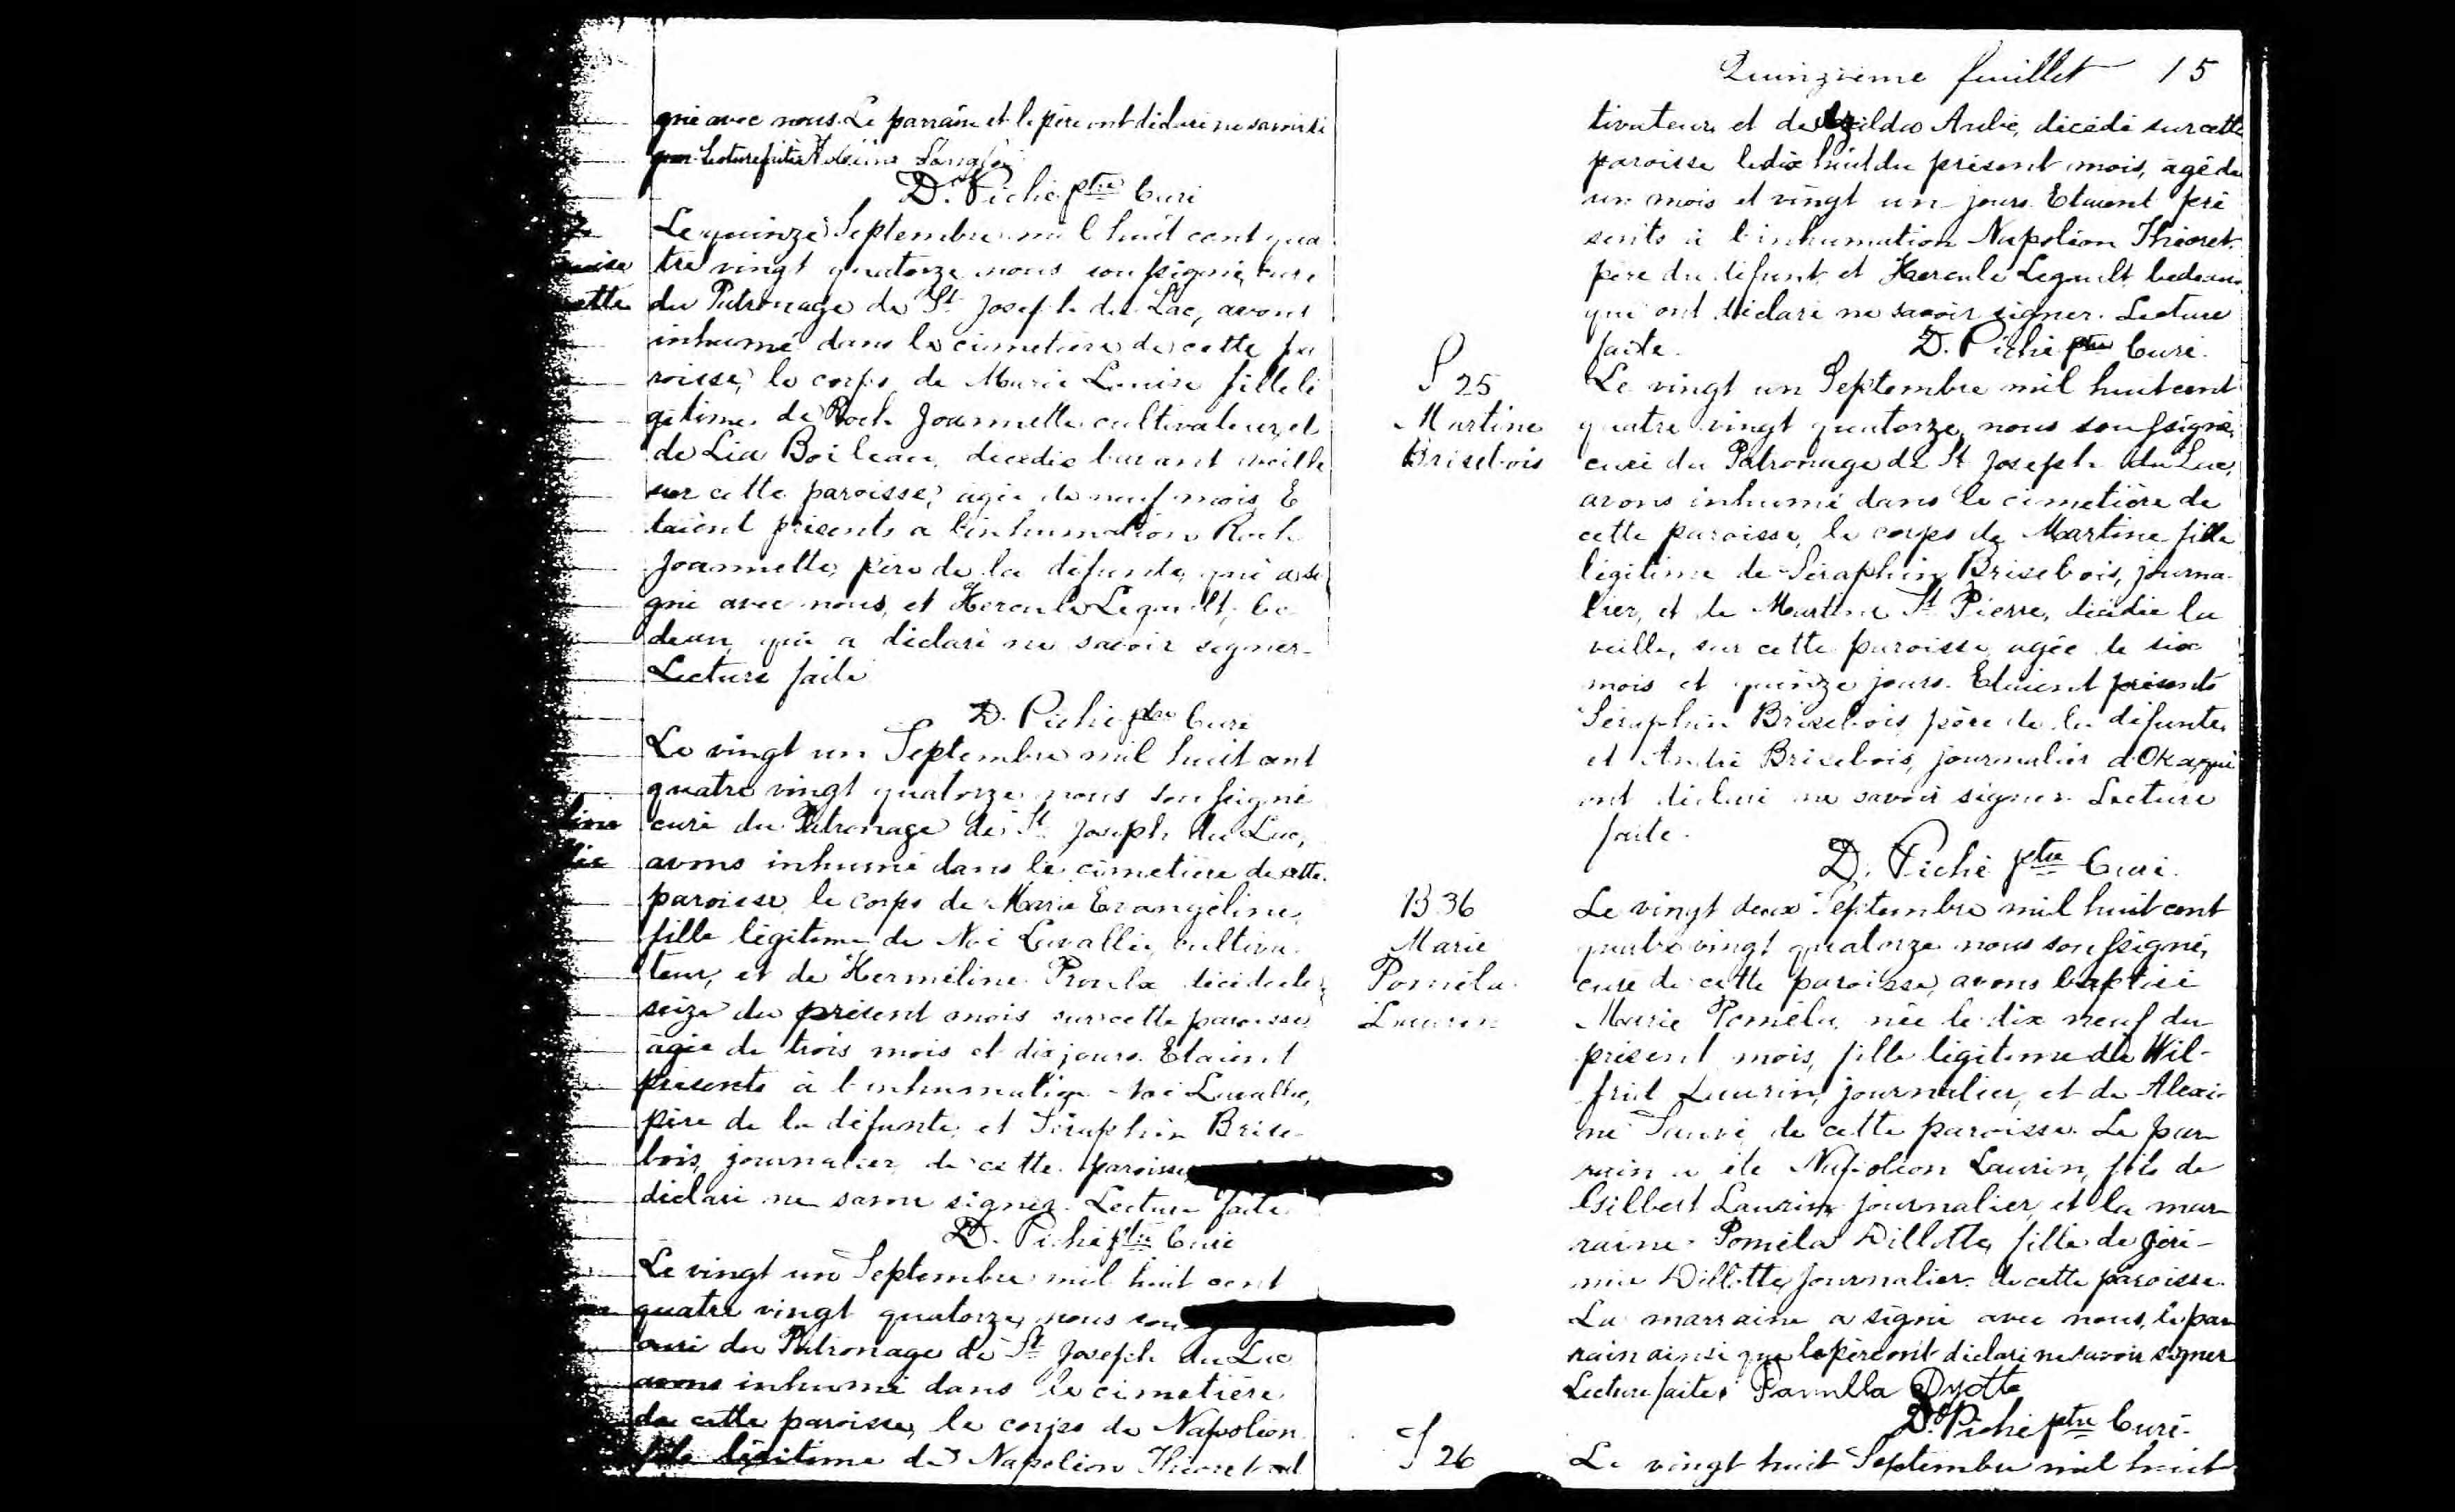 gné avec nous. Le parrain et le père ont déclaré ne savoir si
gner. Lecture faite.
D. Piché ptre Curé
Le quinze Septembre mil huit cent qua
tre vingt quatorze nous soussigné, curé
du Patronage de St Joseph du Lac, avons
inhumé dans le cimetière de cette pa
roisse, le corps de Marie Louise fille lé
gitime de Roch Joannette cultivateur, et
de Lia Boileau, décédée l'avant veille
sur cette paroisse, agée de neuf mois. E
taient présents a l'inhumation Roch
Joannette, père de la défunte, qui a si
gné avec nous, et Hercule Legault, be
deau, qui a déclaré ne savoir signer.
Lecture faite
D. Piché ptre Curé
Le vingt un Septembre mil huit cent
quatre vingt quatorze nous soussigné
curé du Patronage de St Joseph du Lac,
avons inhumé dans le cimetière de cette
paroisse, le corps de Marie Evangéline,
fille légitime de Noé Lavallée, cultiva
teur, et de Herméline Proulx décédée le
seize du présent mois sur cette paroisse
agée de trois mois et dix jours. Etaient
présents à l'inhumation Noé Lavallée,
père de la défunte, et Séraphin Brise-
bois, journalier, de cette paroisse,
déclaré ne savoir signer. Lecture faite.
D. Piché ptre Curé
Le vingt un Septembre mil huit cent
quatre vingt quatorze, nous sous
curé du Patronage de St Joseph du Lac
avons inhumé dans le cimetière
de cette paroisse, le corps de Napoléon
fils légitime de Napoléon Théoret cul
Quinzième feuillet 15
tivateur, et de Aubé, décédé sur cette
paroisse le dix huit du présent mois, agé de
un mois et vingt un jours. Etaient pré
sents à l'inhumation Napoléon Théoret
père du défunt, et Hercule Legault bedeau,
qui ont déclaré ne savoir signer. Lecture
faite. D. Piché ptre Curé.
S 25
Martine
Brisebois
Le vingt un Septembre mil huit cent
quatre vingt quatorze, nous soussigné,
curé du Patronage de St Joseph du Lac,
avons inhumé dans le cimetière de
cette paroisse, le corps de Martine fille
légitime de Séraphin Brisebois, journa-
lier, et de Martine St Pierre, décédée la
veille, sur cette paroisse agée de six
mois et quinze jours. Etaient présents
Séraphin Brisebois père de la défunte,
et André Brisebois, journalier d'Oka, qui
ont déclaré ne savoir signer. Lecture
faite.
D. Piché ptre Curé.
B 36
Marie
Poméla
Laurin
Le vingt deux Septembre mil huit cent
quatre vingt quatorze nous soussigné,
curé de cette paroisse, avons baptisé
Marie Poméla, née le dix neuf du
présent mois, fille légitime de Wil-
frid Laurin, journalier, et de Alexi-
na Sauvé de cette paroisse. Le par
rain a été Napoléon Laurin, fils de
Gilbert Laurin, journalier, et la mar
raine Poméla Dillotte, fille de Jéré-
mie Dillotte, journalier de cette paroisse.
La marraine a signé avec nous, le par
rain ainsi que le père ont déclaré ne savoir signer
Lecture faite. Pamilla Dyotte
D. Piché ptre Curé.
S 26
Le vingt huit Septembre mil huit